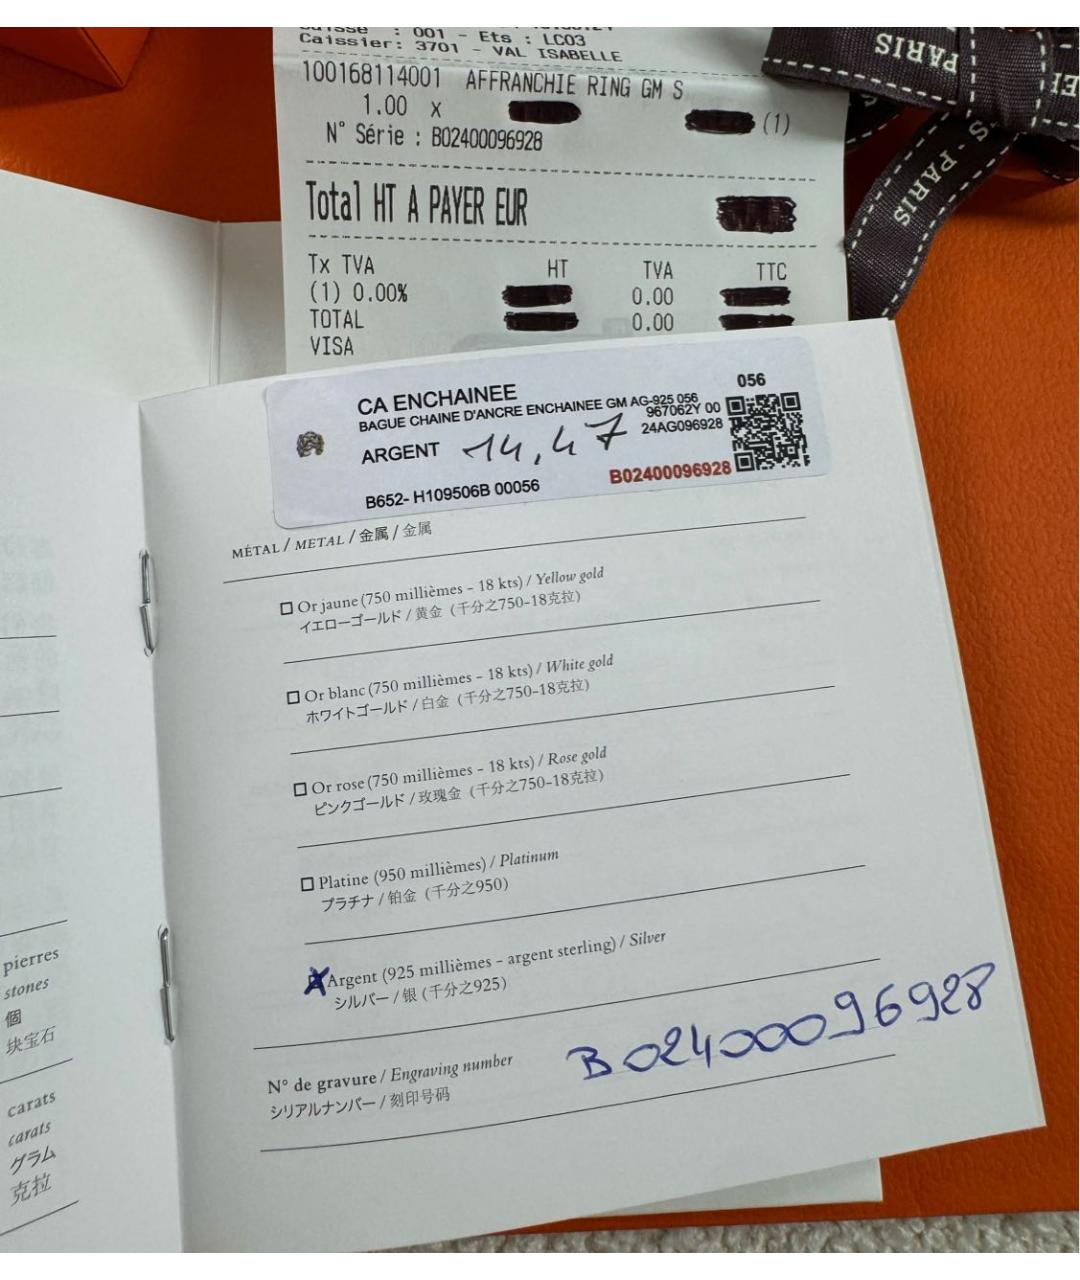 : 001 - Ets : LC03
Caissier: 3701 - VAL ISABELLE
100168114001 AFFRANCHIE RING GM S
1.00 x (1)
N° Série : B02400096928
Total HT A PAYER EUR
Tx TVA HT TVA TTC
(1) 0.00% 0.00
TOTAL 0.00
VISA
PARIS
PARIS
S - PARIS
CA ENCHAINEE
056
BAGUE CHAINE D'ANCRE ENCHAINEE GM AG-925 056
967062Y 00
ARGENT 14,47 24AG096928
B02400096928
B652- H109506B 00056
MÉTAL / METAL / 金属 / 金属
Or jaune (750 millièmes - 18 kts) / Yellow gold
イエローゴールド / 黄金 (千分之750-18克拉)
Or blanc (750 millièmes - 18 kts) / White gold
ホワイトゴールド / 白金 (千分之750-18克拉)
Or rose (750 millièmes - 18 kts) / Rose gold
ピンクゴールド / 玫瑰金 (千分之750-18克拉)
Platine (950 millièmes) / Platinum
プラチナ / 铂金 (千分之950)
Argent (925 millièmes - argent sterling) / Silver
シルバー / 银 (千分之925)
N° de gravure / Engraving number B02400096928
シリアルナンバー / 刻印号码
pierres
stones
個
块宝石
carats
carats
グラム
克拉